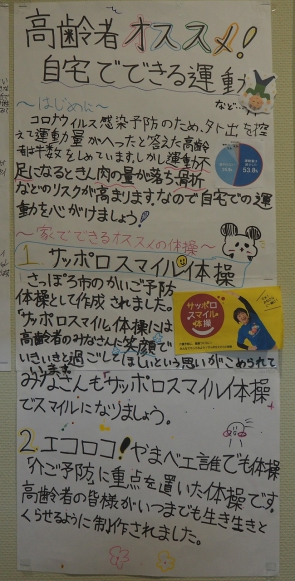 高齢者オススメ!
自宅でできる運動
など…
～はじめに～
コロナウイルス感染予防のため、外出を控
えて運動量がへったと答えた高齢
者は半数をしめています。しかし運動不
足になるときん肉の量が落ち、骨折
などのリスクが高まります。なので自宅での運
動を心がけましょう
53.8%
～家でできるオススメの体操～
1.サッポロスマイル体操
さっぽろ市のかいご予防
体操として作成されました。
「サッポロスマイル体操」には
高齢者のみなさんに笑顔で
いきいきと過ごしてほしいという思いがこめられて
います。
サッポロ
スマイル
体操
みなさんも「サッポロスマイル体操」
でスマイルになりましょう。
2.エコロコ!やまベエ誰でも体操
「介ご予防」に重点を置いた体操です。
高齢者の皆様がいつまでも生き生きと
くらせるように制作されました。